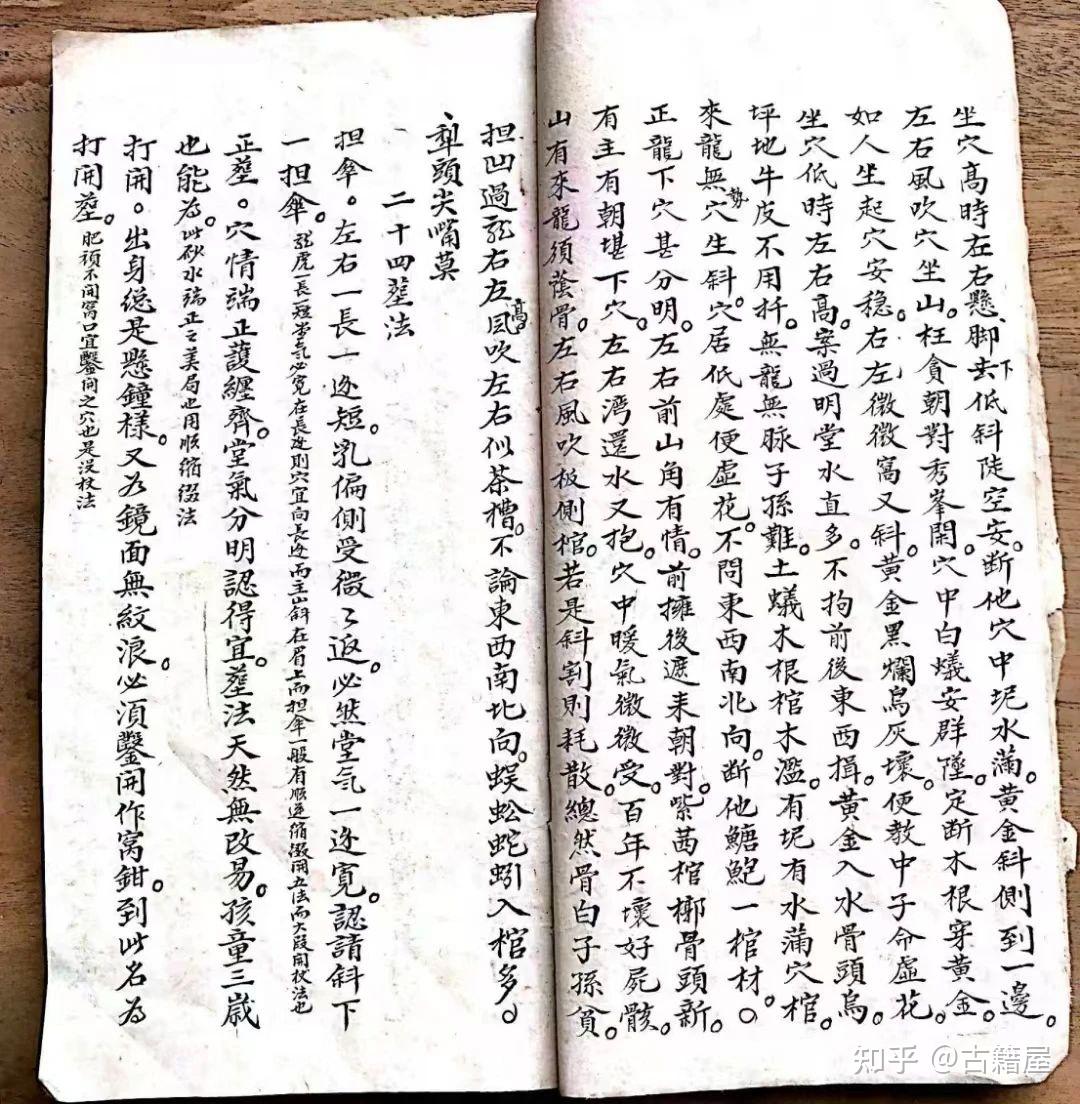 坐穴高時左右懸、脚去下低斜陡空安。断他穴中坭水蒲。黄金斜側到一邊。
左右風吹穴坐山。枉貪朝對秀峯閑。穴中白蟻安群墜。定断木根穿黄金。
如人坐起穴安稳。右左微微窩又斜。黄金黑爛烏灰壞。便教中子命虛花。
坐穴低時左右高。案過明堂水直多。不拘前後東西揖。黄金入水骨頭烏。
坪地牛皮不用扦。無龍無脉子孫難。土蟻木根棺木濫。有坭有水蒲穴棺。
來龍無勢穴生斜。穴居低處便虛花。不問東西南北向。断他鰽鮑一棺材。
正龍下穴甚分明。左右前山角有情。前擁後遮耒朝對。紫茜棺槨骨頭新。
有主有朝堪下穴。左右湾還水又抱。穴中暖氣微微受。百年不壞好屍骸。
山有來龍須蔭骨。左右風吹板側棺。若是斜割則耗散。總然骨白子孫貧。
担凹過龍右左高風吹左右似茶槽。不論東西南北向。蜈蚣蛇蚓入棺多。
犁頭尖嘴莫
二十四塟法
担傘。左右一長一边短。乳偏側受微〻返。必然堂气一边寬。認請斜下
一担傘。龍虎一長一短堂气必寬在長边則穴宜向長边而主山斜在眉上而担傘一般有順逆縮缀開五法而大段開杖法也
正塟。穴情端正護纏齊。堂氣分明認得宜。塟法天然無改易。孩童三歲
也能為。此砂水端正之美局也用順縮缀法
打開。出身總是懸鐘樣。又为鏡面無紋浪。必須鑿開作窩鉗。到此名為
打開塟。肥頑不開窩口宜鑿開之穴也是没杖法
知乎 @古籍屋